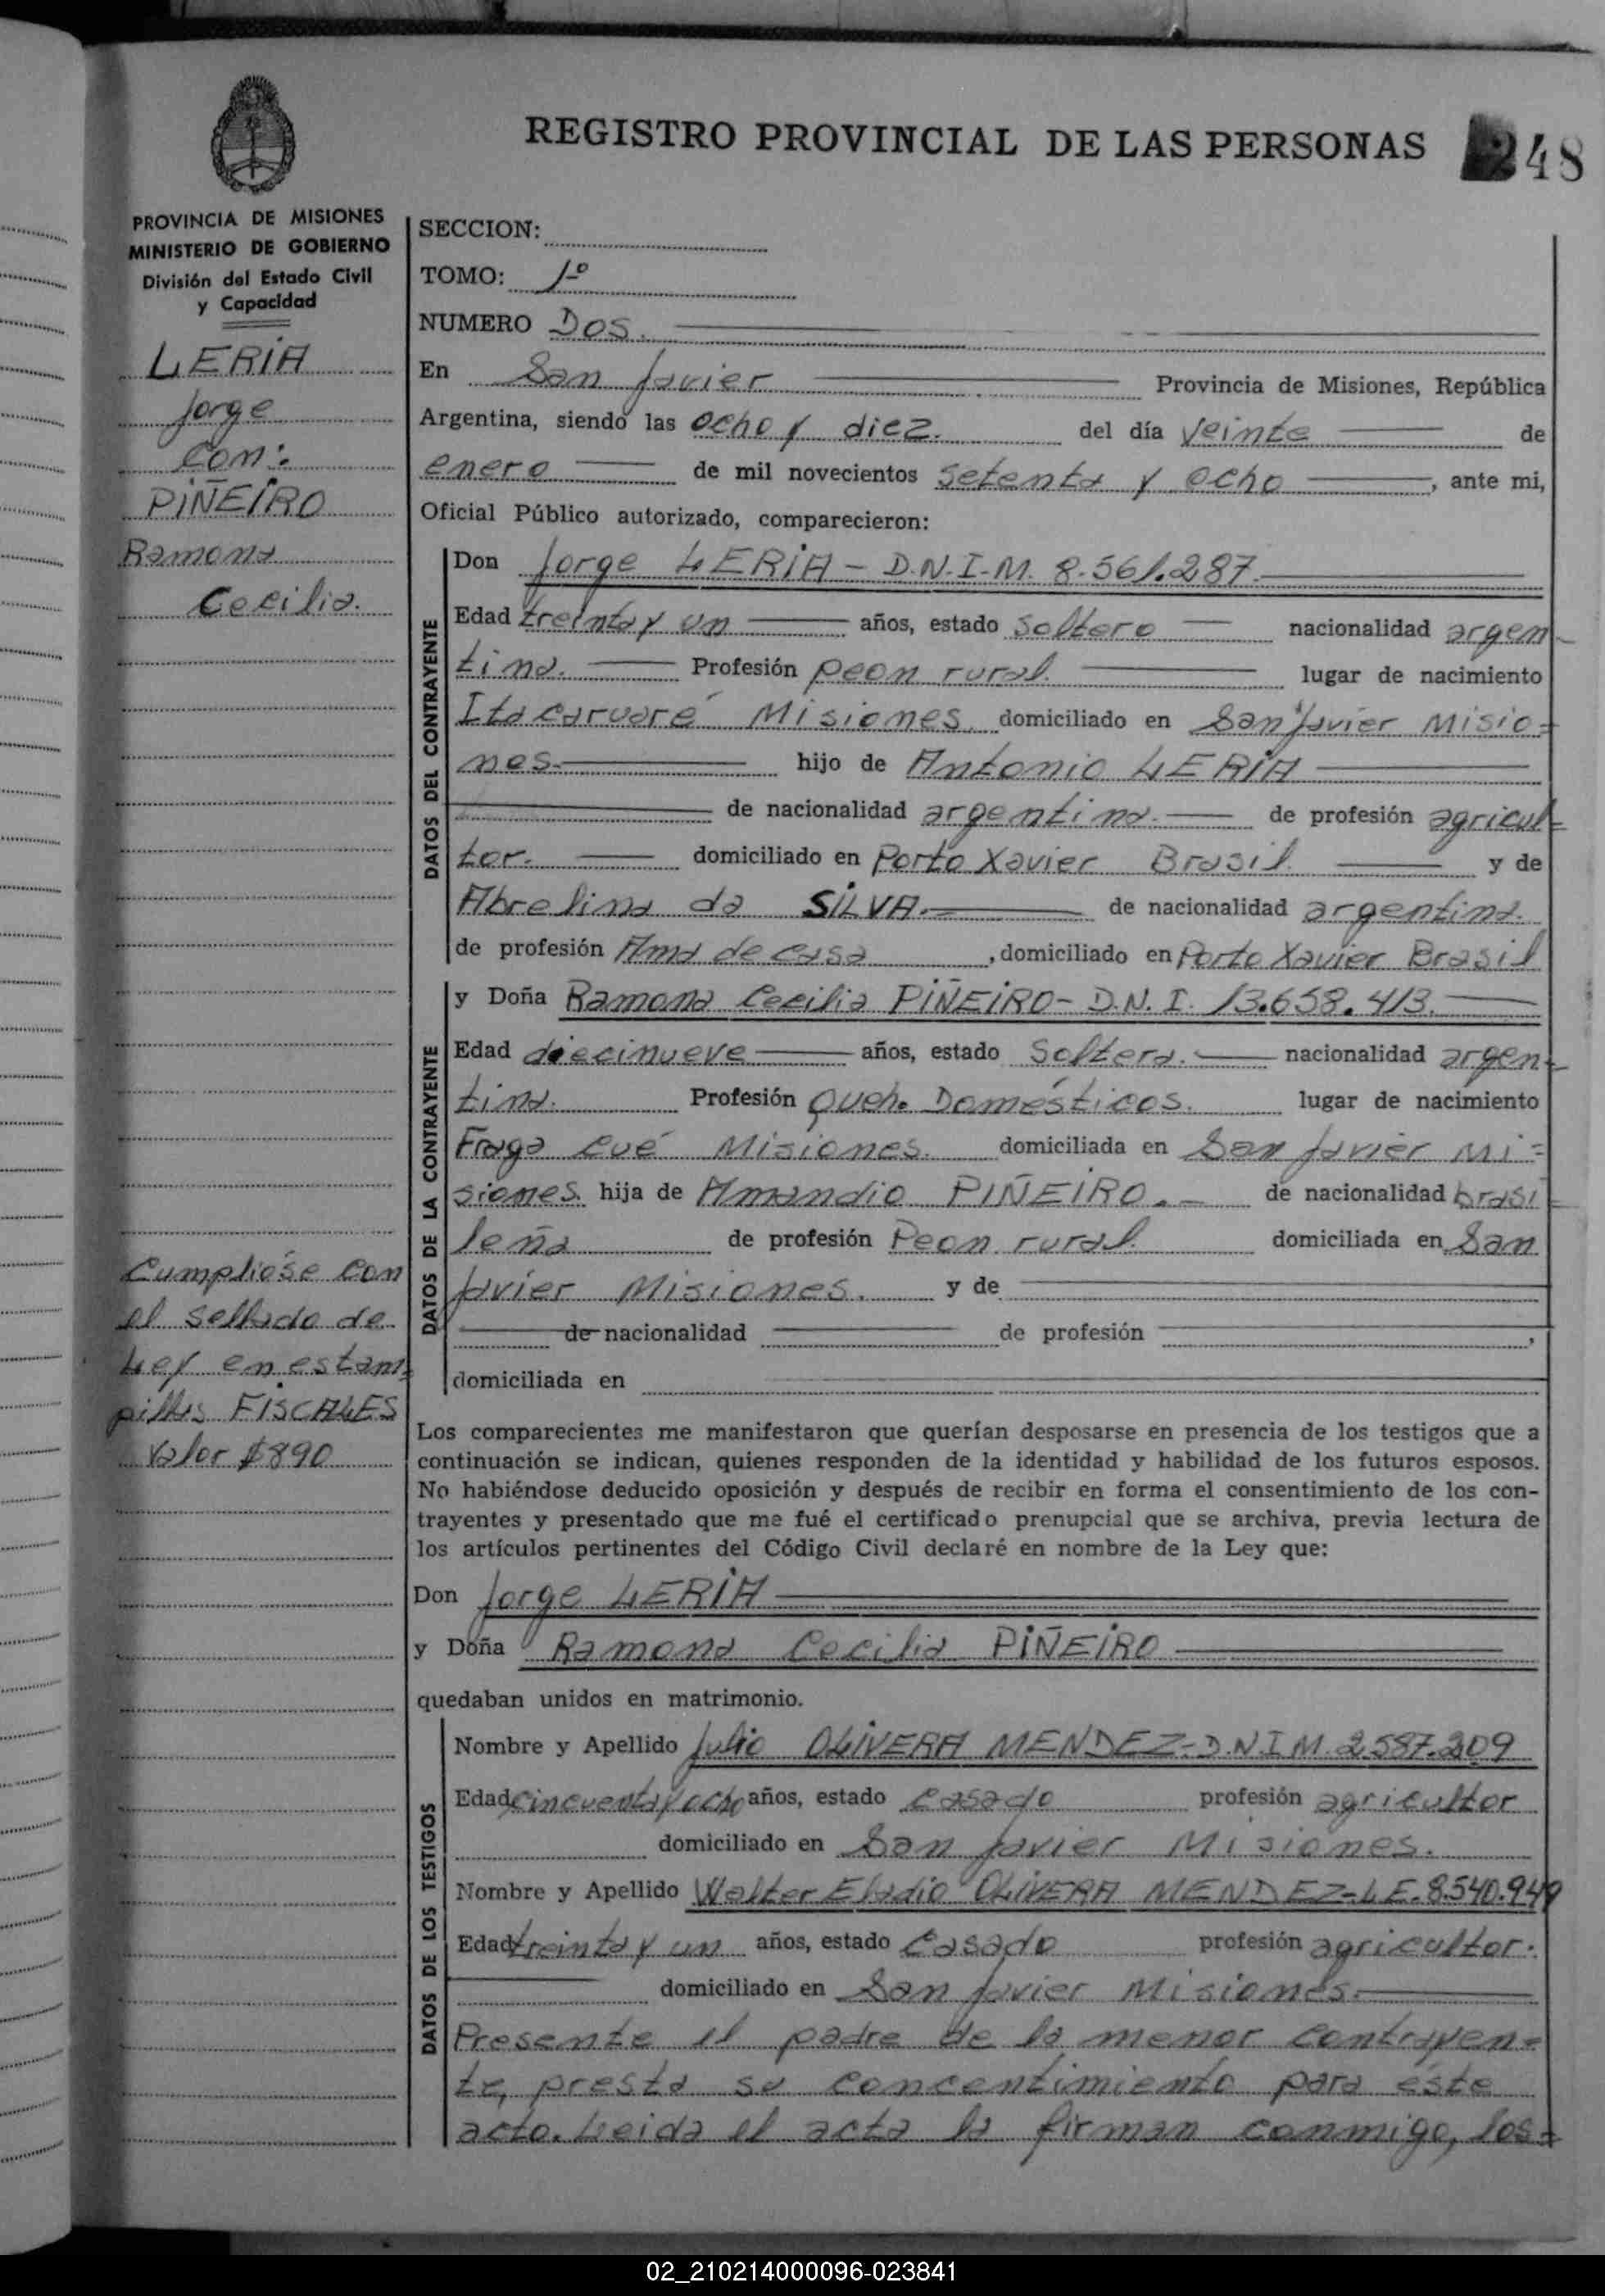 REGISTRO PROVINCIAL DE LAS PERSONAS
248
PROVINCIA DE MISIONES
MINISTERIO DE GOBIERNO
División del Estado Civil
y Capacidad
LERIA
Jorge
Con:
PIÑEIRO
Ramona
Cecilia.
Cumplióse con
el sellado de
Ley en estam=
pillas FISCALES
Valor $890
SECCION:
TOMO: 1º
NUMERO Dos.
En San Javier Provincia de Misiones, República
Argentina, siendo las ocho y diez. del día veinte de
enero de mil novecientos setenta y ocho, ante mi,
Oficial Público autorizado, comparecieron:
DATOS DEL CONTRAYENTE
Don Jorge LERIA - D.N.I.M. 8.561.287.
Edad treinta y un años, estado soltero nacionalidad argen-
tina. Profesión peon rural. lugar de nacimiento
Itacaruaré Misiones. domiciliado en San Javier Misio=
nes. hijo de Antonio LERIA
de nacionalidad argentina. de profesión agricul=
tor. domiciliado en Porto Xavier Brasil. y de
Abrelina da SILVA. de nacionalidad argentina.
de profesión Ama de casa, domiciliado en Porto Xavier Brasil
DATOS DE LA CONTRAYENTE
y Doña Ramona Cecilia PIÑEIRO - D.N.I. 13.658.413.
Edad diecinueve años, estado Soltera. nacionalidad argen=
tina. Profesión Queh. Domésticos. lugar de nacimiento
Fraga Cué Misiones. domiciliada en San Javier Mi=
siones. hija de Amandio PIÑEIRO. de nacionalidad brasi=
leña de profesión Peon rural. domiciliada en San
Javier Misiones. y de
de nacionalidad de profesión ,
domiciliada en
Los comparecientes me manifestaron que querían desposarse en presencia de los testigos que a
continuación se indican, quienes responden de la identidad y habilidad de los futuros esposos.
No habiéndose deducido oposición y después de recibir en forma el consentimiento de los con-
trayentes y presentado que me fué el certificado prenupcial que se archiva, previa lectura de
los artículos pertinentes del Código Civil declaré en nombre de la Ley que:
Don Jorge LERIA
y Doña Ramona Cecilia PIÑEIRO
quedaban unidos en matrimonio.
DATOS DE LOS TESTIGOS
Nombre y Apellido Julio OLIVERA MENDEZ - D.N.I.M. 2.587.209
Edad cincuenta y ocho años, estado casado profesión agricultor
domiciliado en San Javier Misiones.
Nombre y Apellido Walter Eladio OLIVERA MENDEZ - L.E. 8.540.949
Edad treinta y un años, estado Casado profesión agricultor.
domiciliado en San Javier Misiones.
Presente el padre de la menor contrayen=
te, presta su concentimiento para éste
acto. Leida el acta la firman conmigo, los=
02_210214000096-023841